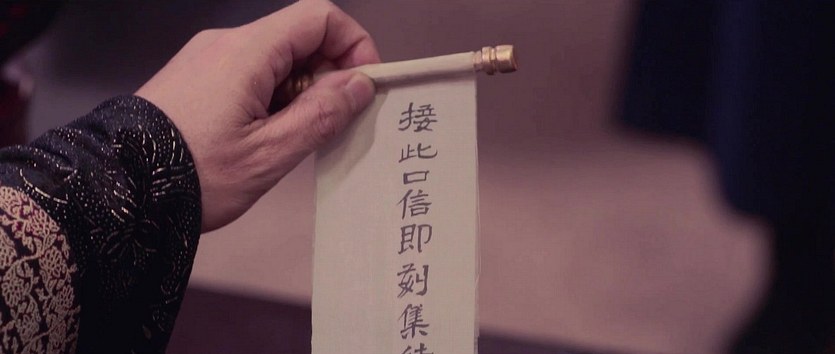 接此口信即刻集